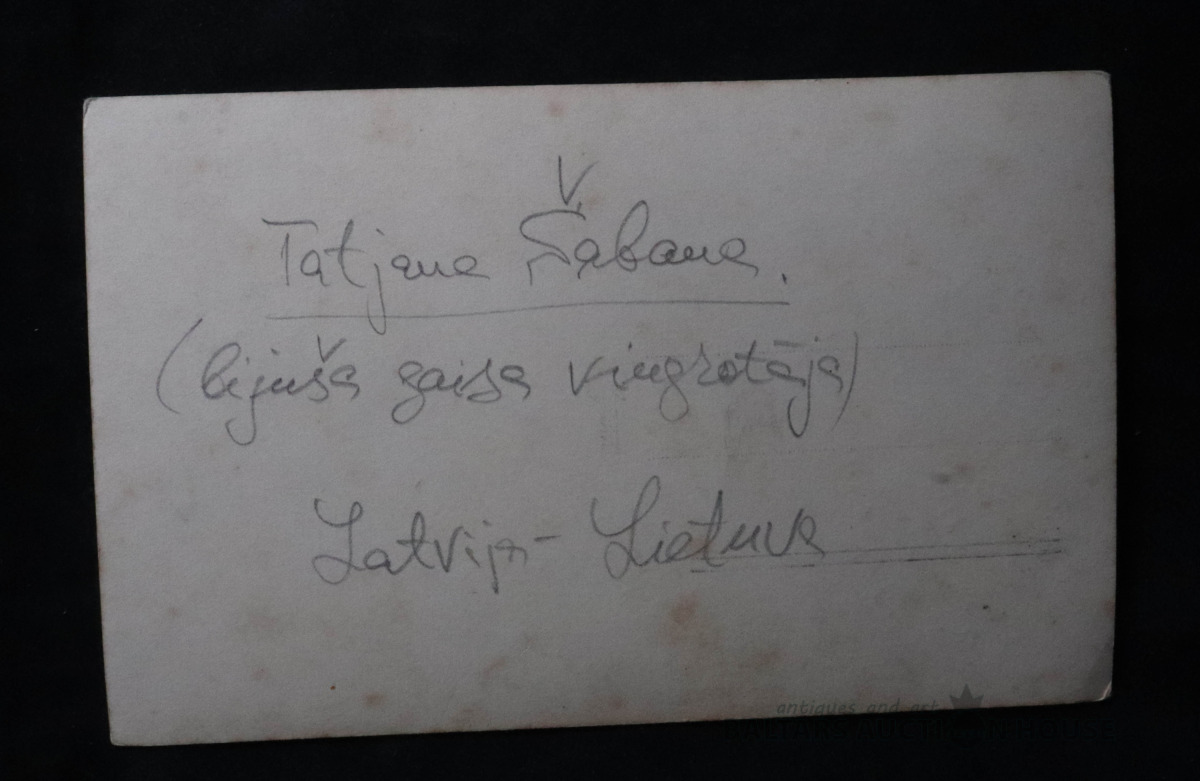 Tatjana Šabana.
(bijuša gaisa vingrotāja)
Latvija - Lietuva
antiques and art
BALTARS AUCTION HOUSE